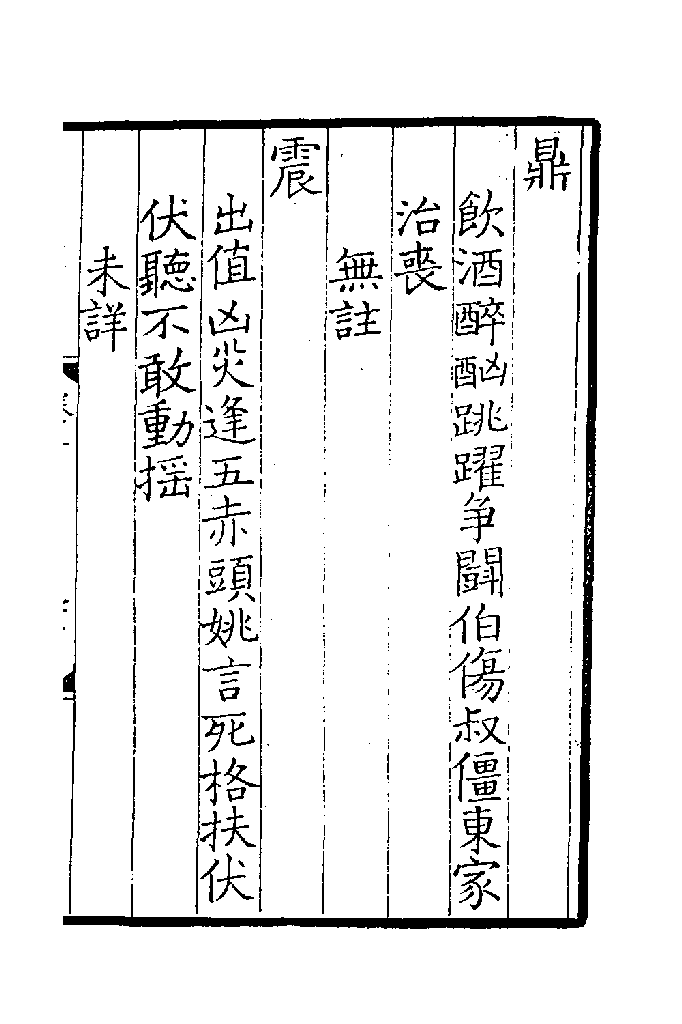 鼎
飲酒醉酗跳躍争鬭伯傷叔僵東家
治喪
無註
震
出值凶災逢五赤頭姚言死格扶伏
伏聽不敢動揺
未詳